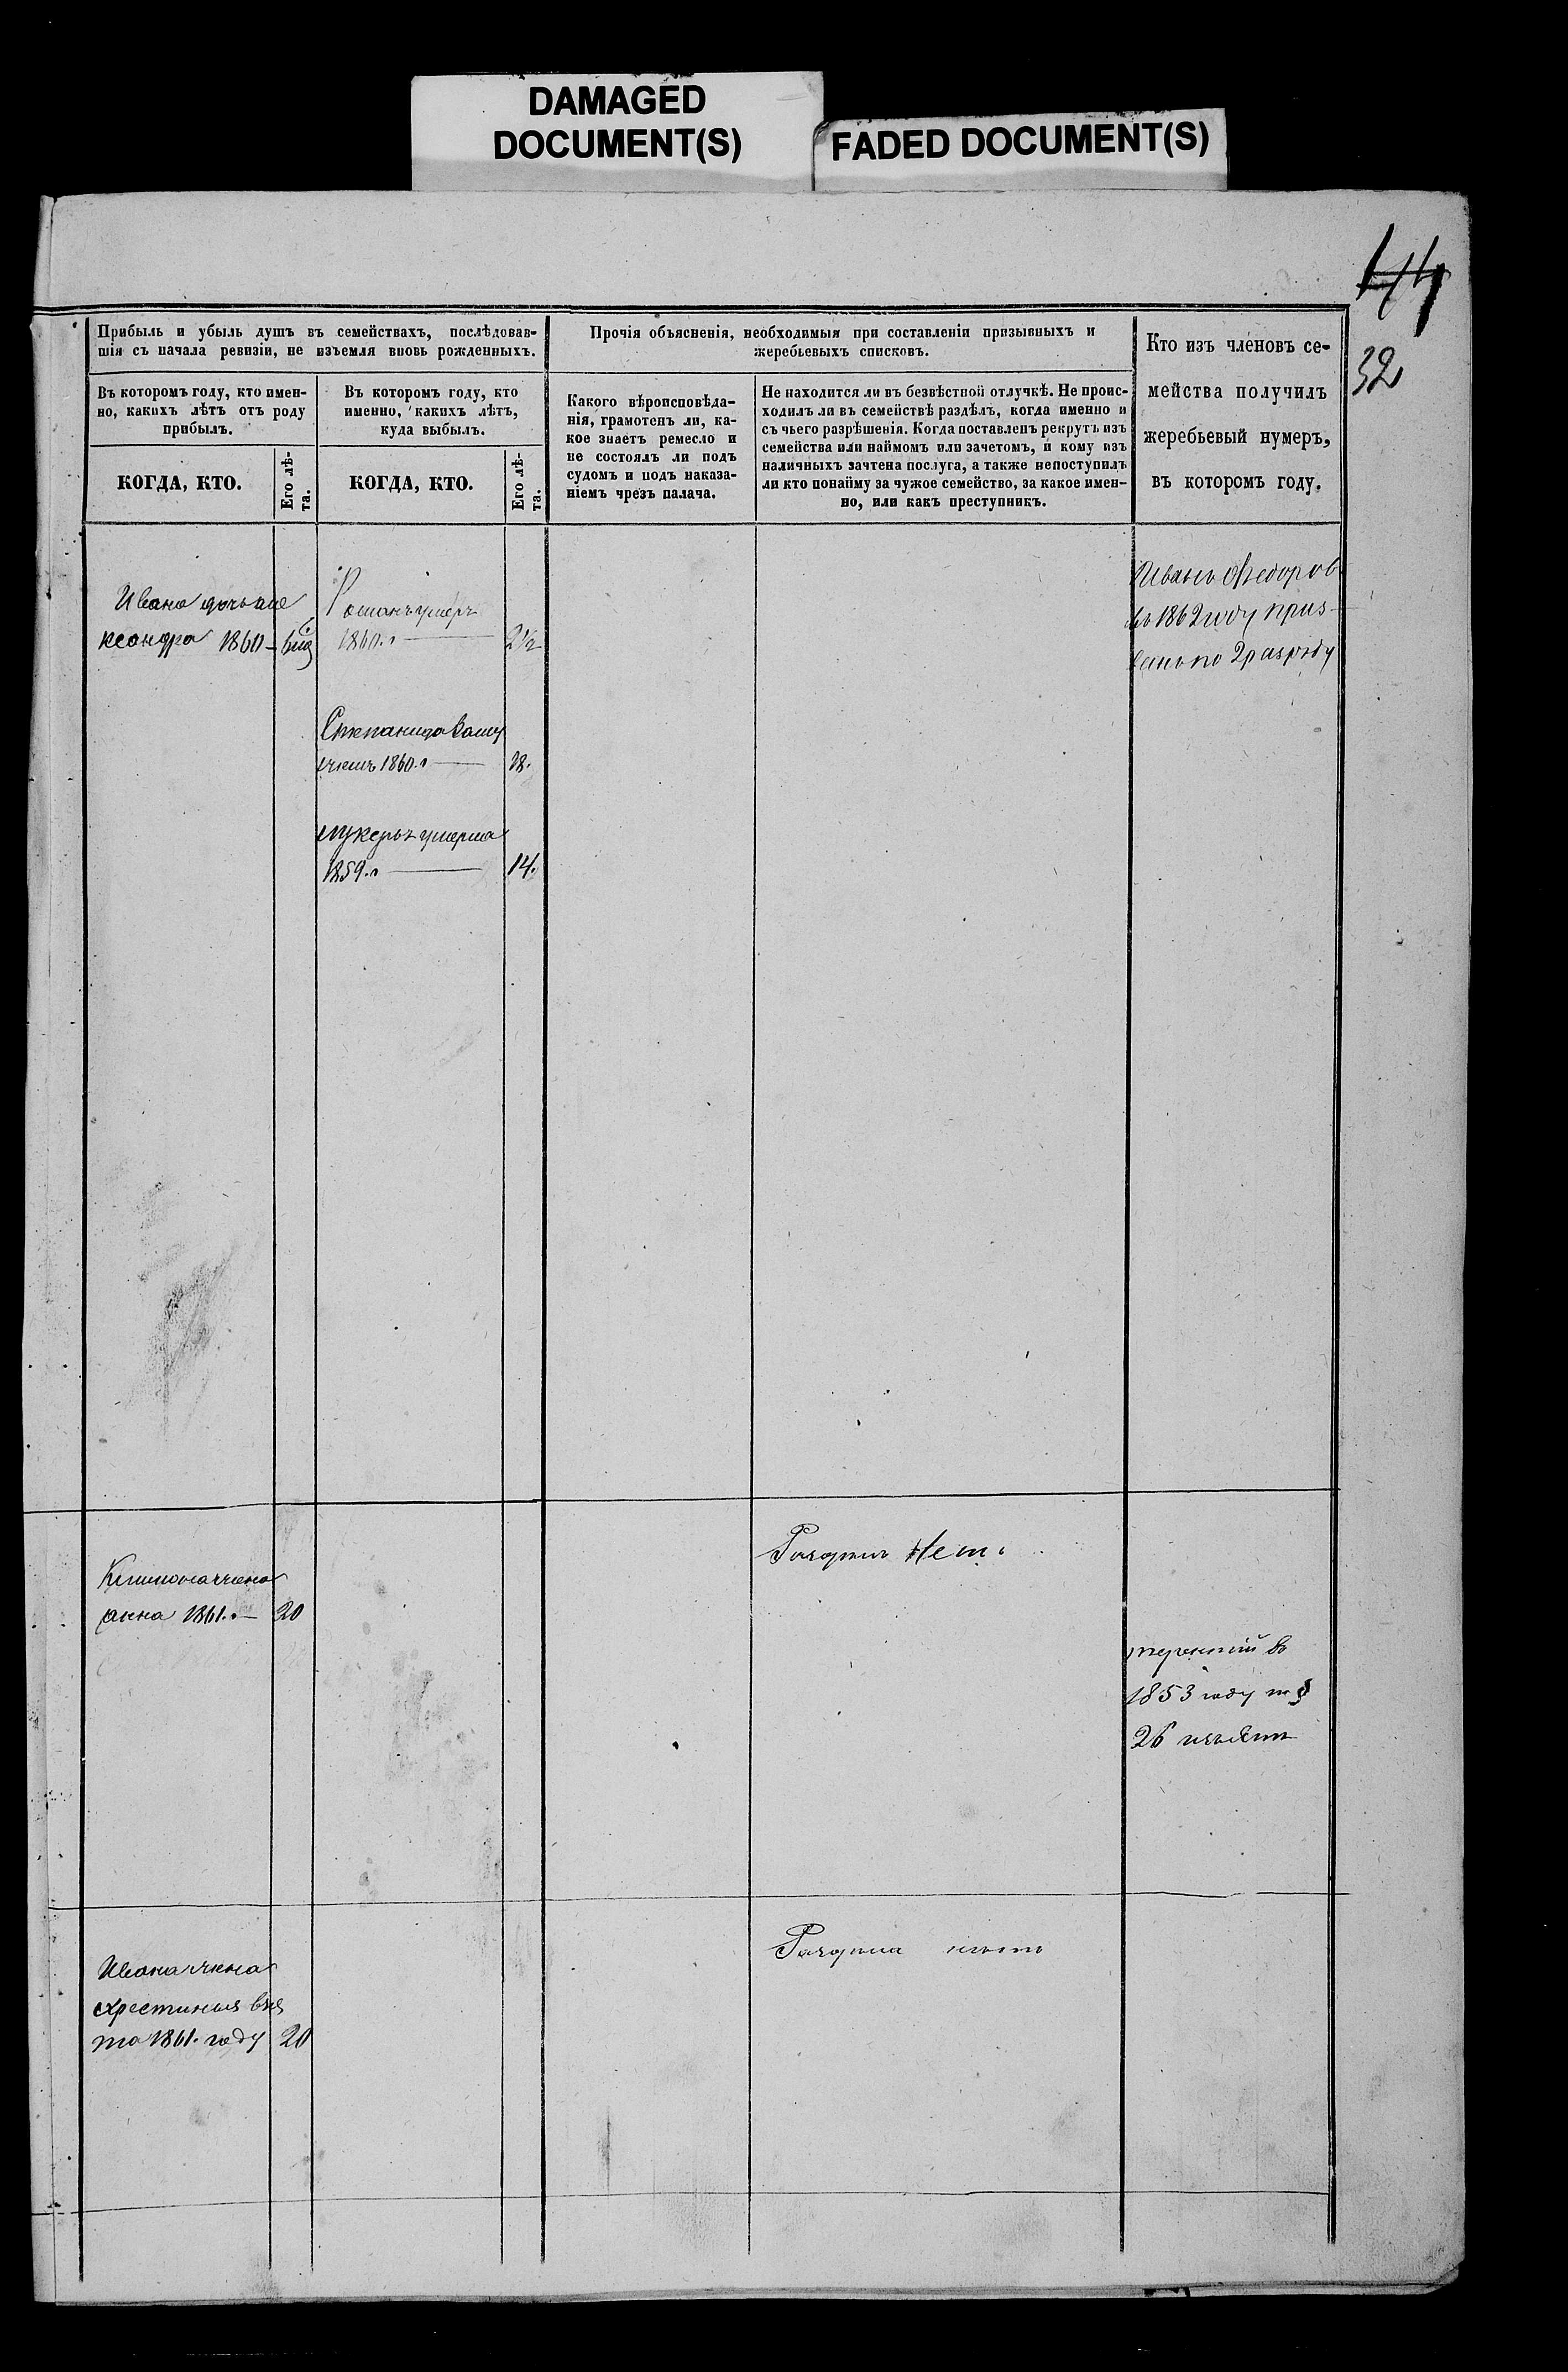 DAMAGED
DOCUMENT(S)
FADED DOCUMENT(S)
32
Прибыль и убыль душъ въ семействахъ, послѣдовав-
шія съ начала ревизіи, не изъемля вновь рожденныхъ.
Прочія объясненія, необходимыя при составленіи призывныхъ и
жеребьевыхъ списковъ.
Кто изъ членовъ се-
мейства получилъ
жеребьевый нумеръ,
въ которомъ году.
Въ которомъ году, кто имен-
но, какихъ лѣтъ отъ роду
прибылъ.
Въ которомъ году, кто
именно, какихъ лѣтъ,
куда выбылъ.
Какого вѣроисповѣда-
нія, грамотенъ ли, ка-
кое знаетъ ремесло и
не состоялъ ли подъ
судомъ и подъ наказа-
ніемъ чрезъ палача.
Не находится ли въ безвѣстной отлучкѣ. Не проис-
ходилъ ли въ семействѣ раздѣлъ, когда именно и
съ чьего разрѣшенія. Когда поставленъ рекрутъ изъ
семейства или наймомъ или зачетомъ, и кому изъ
наличныхъ зачтена послуга, а также непоступилъ
ли кто понайму за чужое семейство, за какое имен-
но, или какъ преступникъ.
КОГДА, КТО.
Его лѣ-
та.
КОГДА, КТО.
Его лѣ-
та.
Ивана дочь але
ксандра 1860
Романъ умеръ
1860.г 2½
Степанида взаму
жемъ 1860.г 18.
лукерья умерла
1859.г 14.
Иванъ Федоров
въ 1862 году приз-
ванъ по 2 разряду
Раздѣла Нет.
жена
анна 1861. 20
терентий въ
1853 году по §
26 изъятъ
Раздѣла нѣтъ
Ивана жена
хрестинья взя
та 1861. году 20